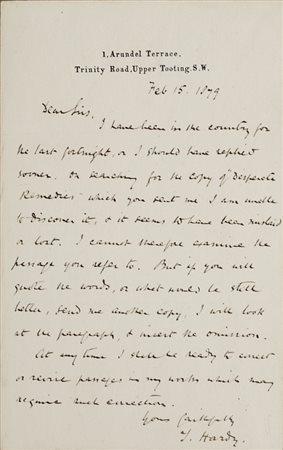 1, Arundel Terrace.
Trinity Road, Upper Tooting. S.W.
Feb 15. 1879
Dear Sirs,
I have been in the country for
the last fortnight, or I should have replied
sooner. On searching for the copy of "Desperate
Remedies" which you sent me I am unable
to discover it, & it seems to have been mislaid
or lost. I cannot therefore examine the
passage you refer to. But if you will
quote the words, or what would be still
better, send me another copy, I will look
at the paragraph, & insert the omission.
At any time I shall be ready to correct
or revise passages in my works which may
require such correction.
Yours faithfully
T. Hardy.